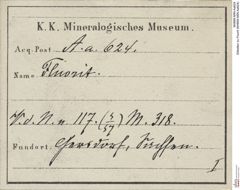 K. K. Mineralogisches Museum.
Acq. Post A. a. 624.
Name Fluorit.
V. d. N. n 117. (5/57) M. 318.
Fundort: Gersdorf, Sachsen.
I